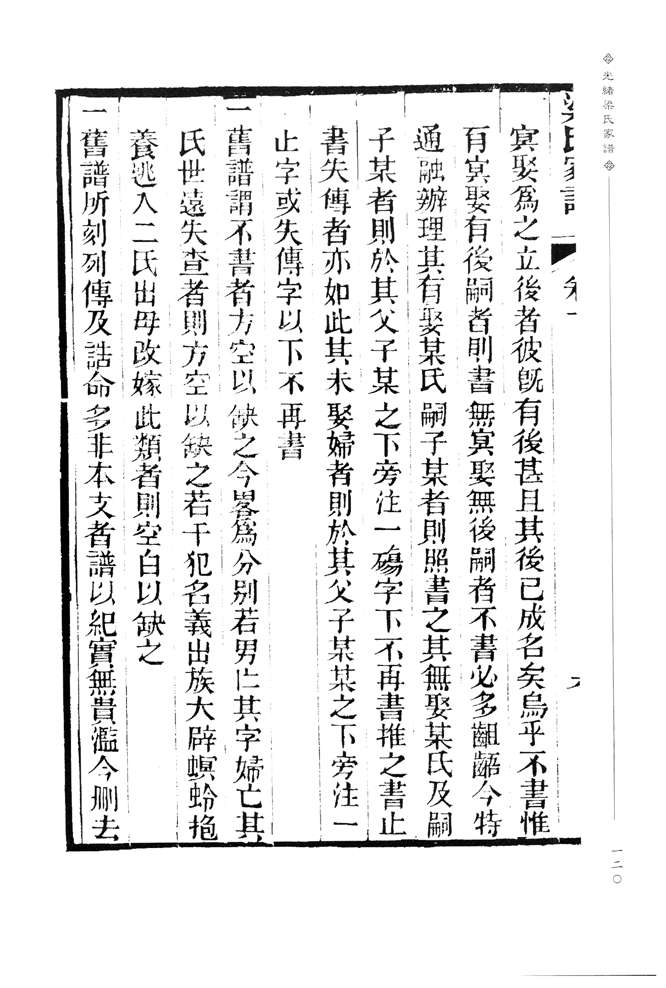 光緒梁氏家譜
一二〇
梁氏家譜 卷一
六
冥娶為之立後者彼旣有後甚且其後已成名矣烏乎不書惟
有冥娶有後嗣者則書無冥娶無後嗣者不書必多齟齬今特
通融辦理其有娶某氏嗣子某者則照書之其無娶某氏及嗣
子某者則於其父子某之下旁注一殤字下不再書推之書止
書失傳者亦如此其未娶婦者則於其父子某某之下旁注一
止字或失傳字以下不再書
一舊譜謂不書者方空以缺之今畧為分别若男亡其字婦亡其
氏世遠失查者則方空以缺之若干犯名義出族大辟螟蛉抱
養逃入二氏出母改嫁此類者則空白以缺之
一舊譜所刻列傳及誥命多非本支者譜以紀實無貴濫今刪去